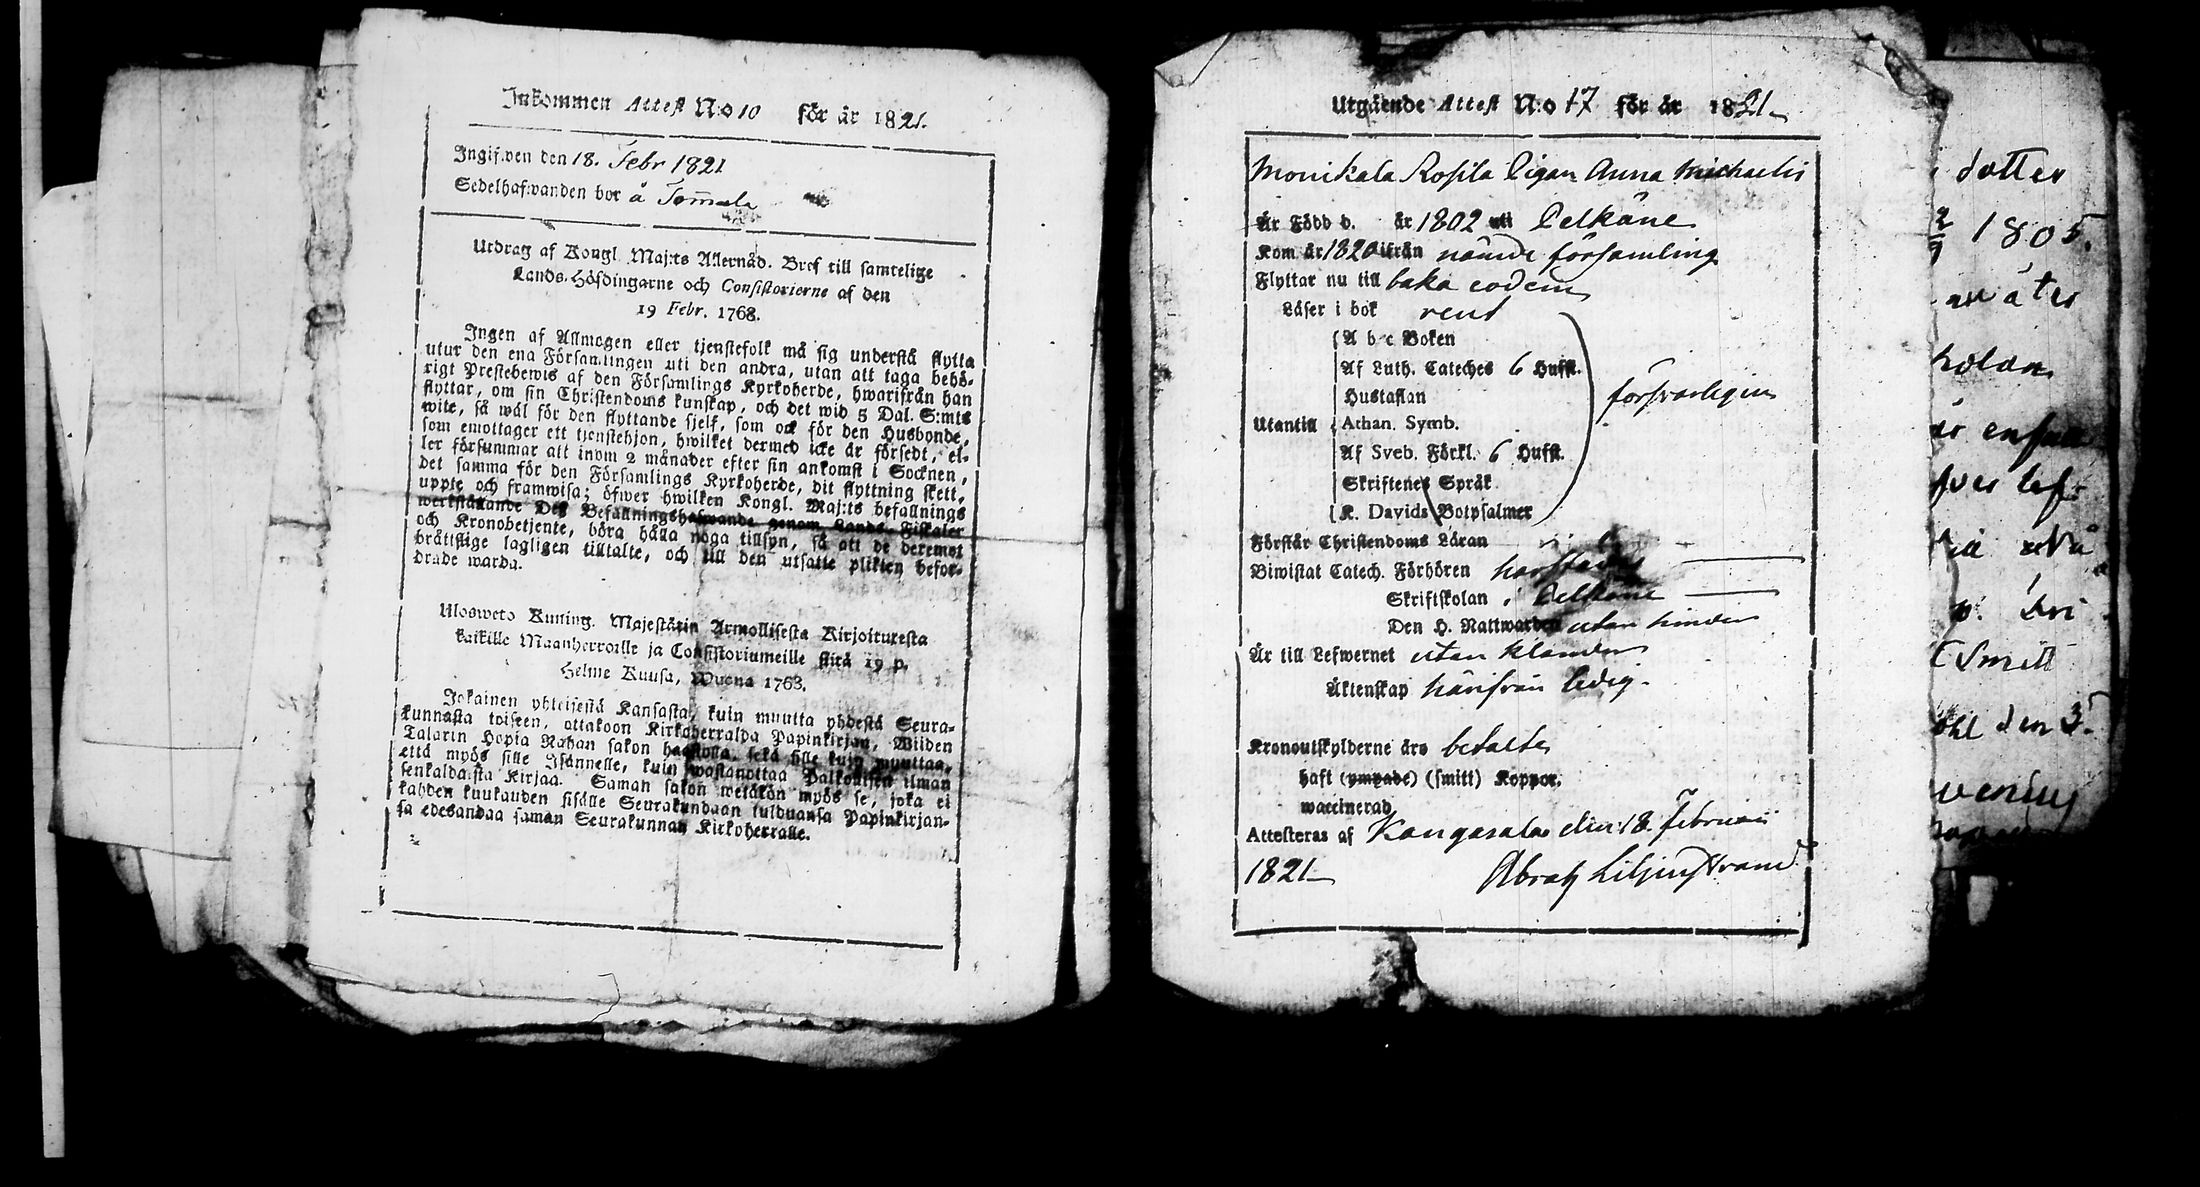 Inkommen Attest N:o 10 för år 1821.
Ingifwen den 18. Febr 1821
Sedelhafwanden bor å Tommala
Utdrag af Kongl. Maj:ts Allernåd. Bref till samtelige
Lands-Höfdingarne och Consistorierne af den
19 Febr. 1768.
Ingen af Allmogen eller tjenstefolk må sig understå flytta
utur den ena Församlingen uti den andra, utan att taga behö-
rigt Prestebewis af den Församlings Kyrkoherde, hwarifrån han
flyttar, om sin Christendoms kunskap, och det wid 5 Dal. S:mts
wite, så wäl för den flyttande sjelf, som ock för den Husbonde,
som emottager ett tjenstehjon, hwilket dermed icke är försedt, el-
ler försummar att inom 2 månader efter sin ankomst i Socknen,
det samma för den Församlings Kyrkoherde, dit flyttning skett,
uppte och framwisa; öfwer hwilken Kongl. Maj:ts befallnings
werkställande Deß Befallningshafwande genom Lands Fiskaler
och Kronobetjente, böra hålla noga tillsyn, så att de deremot
bråttslige lagligen tilltalte, och till den utsatte plikten befor-
drade warda.
Ulosweto Kuning. Majestätin Armollisesta Kirjoituxesta
kaikille Maanherroille ja Consistoriumeille siitä 19 p.
Helme Kuusa, Wuona 1768.
Jokainen yhteisestä Kansasta, kuin muutta yhdestä Seura-
kunnasta toiseen, ottakoon Kirkoherralda Papinkirjan, Wiiden
Talarin Hopia Rahan sakon haastolla, sekä sille kuin muuttaa,
että myös sille Isännelle, kuin wastanottaa Palkollisen ilman
senkaldaista Kirjaa. Saman sakon wetäkön myös se, joka ei
kahden kuukauden sisälle Seurakundaan tulduansa Papinkirjan-
sa edesandaa saman Seurakunnan Kirkoherralle.
Utgående Attest N:o 17 för år 1821
Monikala Rosila Pigan Anna Michaelis
Är Född d. år 1802 uti Pelkäne
Kom år 1820 ifrån nämde församling
Flyttar nu till baka eodem
Läser i bok rent
A b c Boken
Af Luth. Cateches 6 Hufst.
Hustaflan
försvarligen
Utantill Athan. Symb.
Af Sveb. Förkl. 6 Hufst.
Skriftenes Språk
K. Davids Botpsalmer
Förstår Christendoms Läran
Biwistat Catech. Förhören
Skriftskolan i Pelkäne
Den H. Nattwarden utan hinder
Är till Lefwernet utan klander
Äktenskap härifrån ledig.
Kronoutskylderne äro betalte
haft (ympade) (smitt) Koppor.
waccinerad
Attesteras af Kangasala den 18 Februarii
1821 Abrah Liljenstrand
dotter
2/9 1805.
åter
lef-
Smitt
den 3.